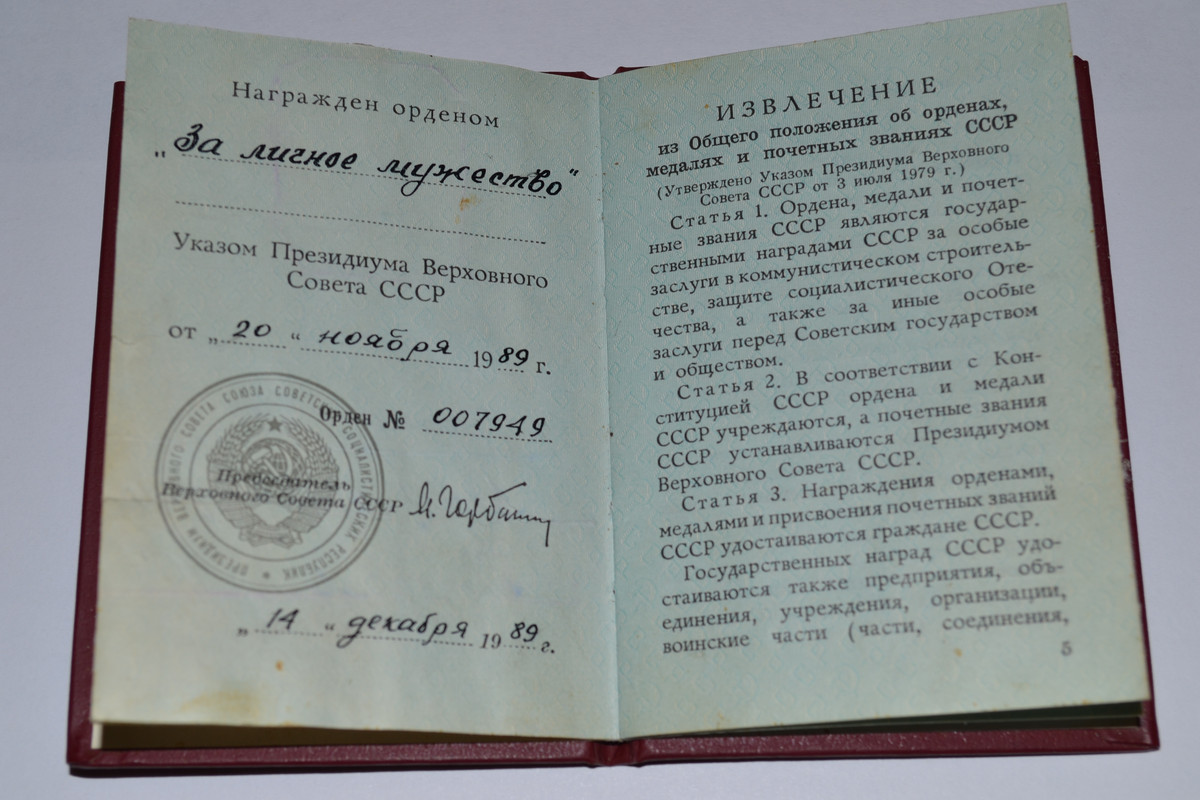 Награжден орденом
„За личное мужество"
Указом Президиума Верховного
Совета СССР
от „20“ ноября 1989 г.
Орден № 007949
Председатель
Верховного Совета СССР М. Горбачев
ПРЕЗИДИУМ ВЕРХОВНОГО СОВЕТА СОЮЗА СОВЕТСКИХ СОЦИАЛИСТИЧЕСКИХ РЕСПУБЛИК
„14“ декабря 1989 г.
ИЗВЛЕЧЕНИЕ
из Общего положения об орденах,
медалях и почетных званиях СССР
(Утверждено Указом Президиума Верховного
Совета СССР от 3 июля 1979 г.)
Статья 1. Ордена, медали и почет-
ные звания СССР являются государ-
ственными наградами СССР за особые
заслуги в коммунистическом строитель-
стве, защите социалистического Оте-
чества, а также за иные особые
заслуги перед Советским государством
и обществом.
Статья 2. В соответствии с Кон-
ституцией СССР ордена и медали
СССР учреждаются, а почетные звания
СССР устанавливаются Президиумом
Верховного Совета СССР.
Статья 3. Награждения орденами,
медалями и присвоения почетных званий
СССР удостаиваются граждане СССР.
Государственных наград СССР удо-
стаиваются также предприятия, объ-
единения, учреждения, организации,
воинские части (части, соединения,
5